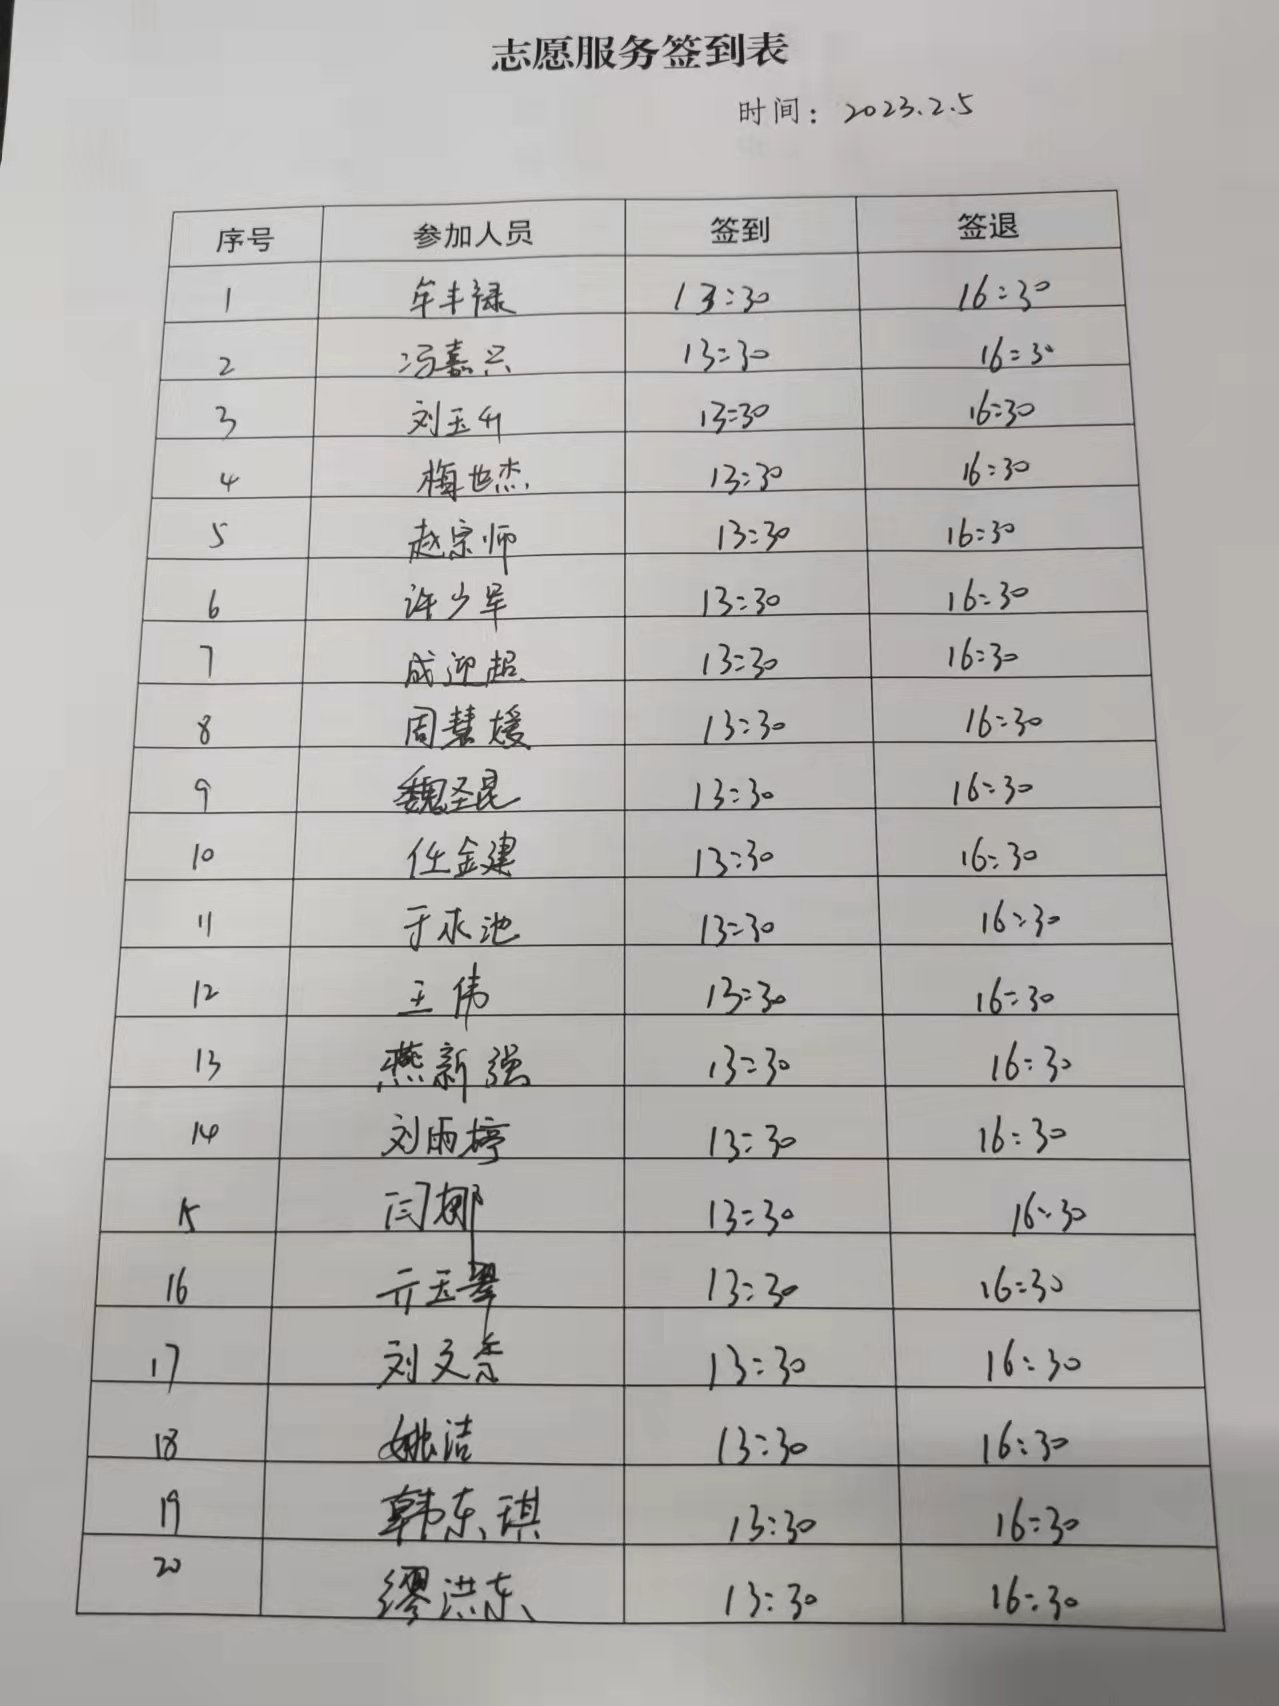 志愿服务签到表
时间：2023.2.5
序号 参加人员 签到 签退
1 牟丰禄 13:30 16:30
2 冯嘉兴 13:30 16:30
3 刘玉升 13:30 16:30
4 梅世杰 13:30 16:30
5 赵宗师 13:30 16:30
6 许少军 13:30 16:30
7 成迎超 13:30 16:30
8 周慧媛 13:30 16:30
9 魏圣昆 13:30 16:30
10 任金建 13:30 16:30
11 于永池 13:30 16:30
12 王伟 13:30 16:30
13 燕新强 13:30 16:30
14 刘雨婷 13:30 16:30
15 闫娜 13:30 16:30
16 亓玉翠 13:30 16:30
17 刘文秀 13:30 16:30
18 姚洁 13:30 16:30
19 韩东琪 13:30 16:30
20 缪洪东 13:30 16:30